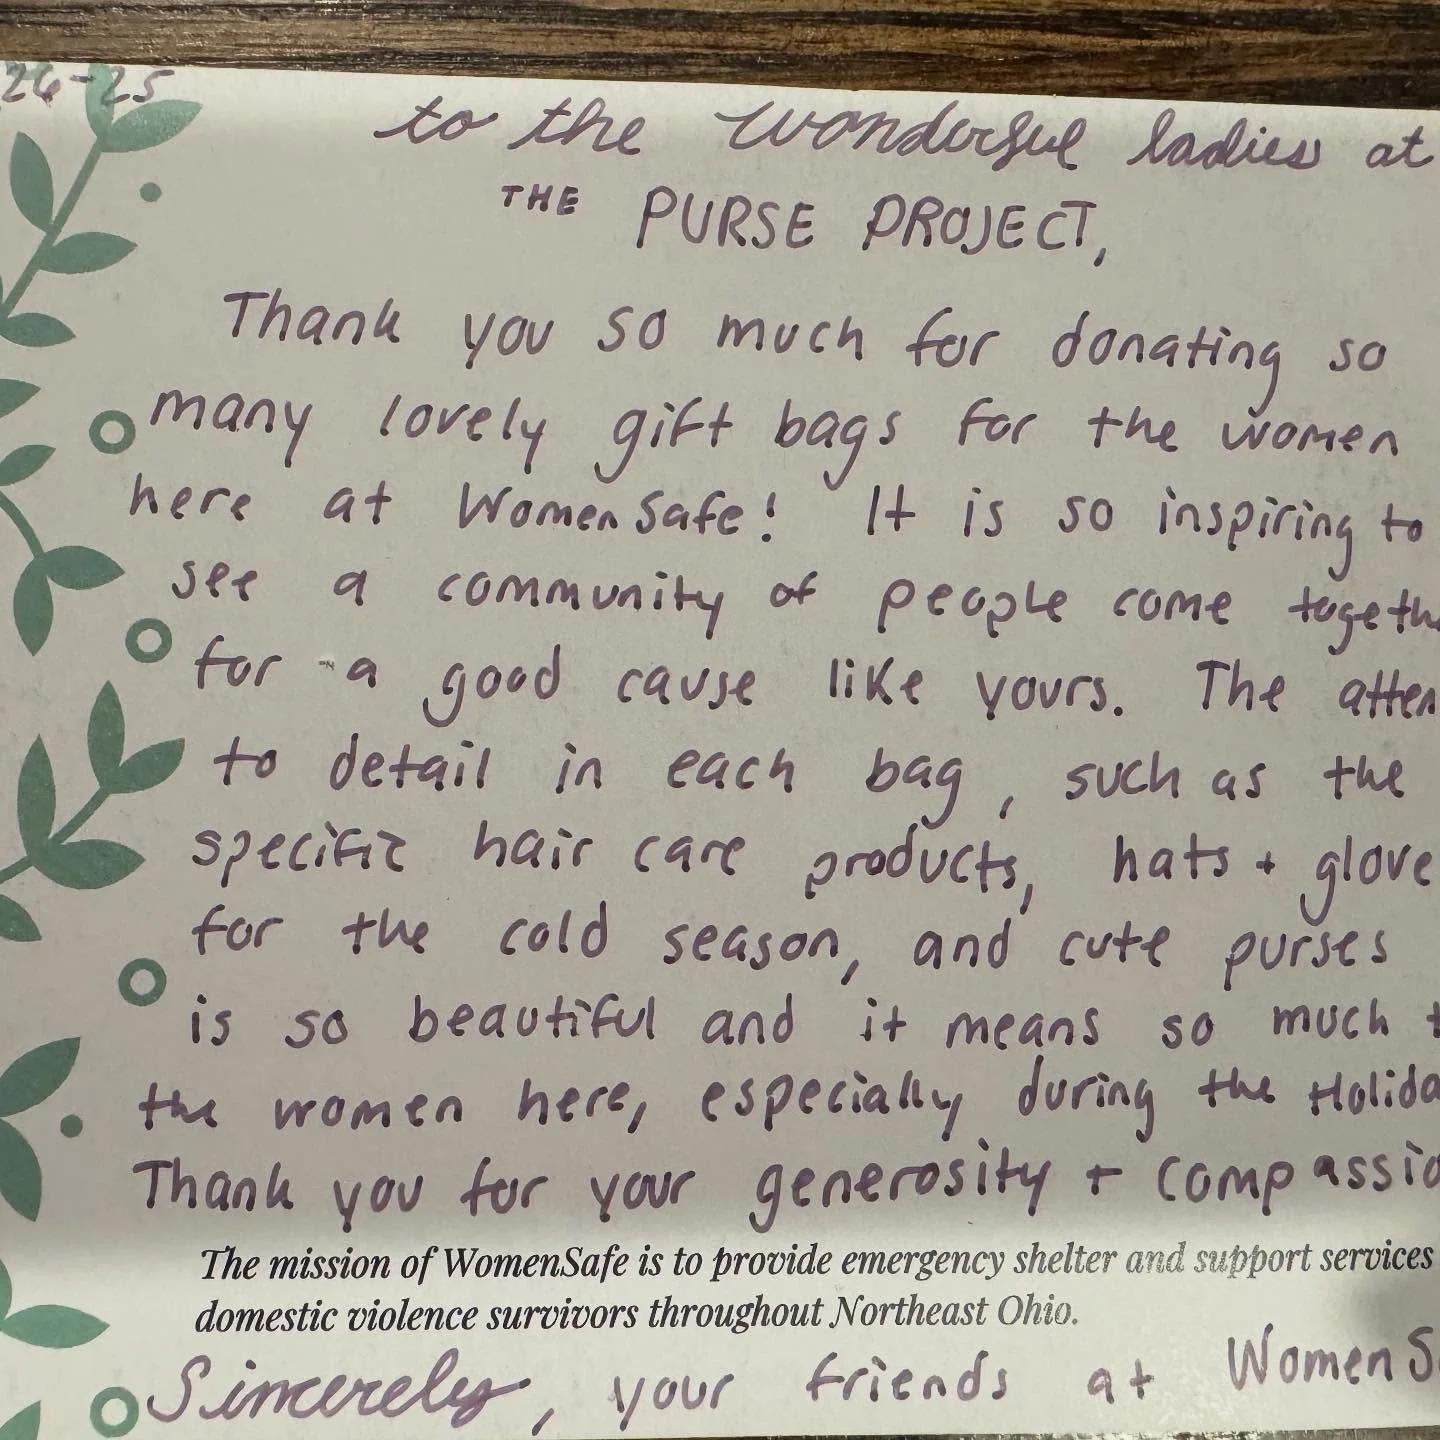 26-25
to the wonderful ladies at
THE PURSE PROJECT,
Thank you so much for donating so
many lovely gift bags for the women
here at WomenSafe! It is so inspiring to
see a community of people come togeth
for a good cause like yours. The atten
to detail in each bag, such as the
specific hair care products, hats + glove
for the cold season, and cute purses
is so beautiful and it means so much t
the women here, especially during the Holida
Thank you for your generosity + compassio
The mission of WomenSafe is to provide emergency shelter and support services
domestic violence survivors throughout Northeast Ohio.
Sincerely, your friends at WomenS